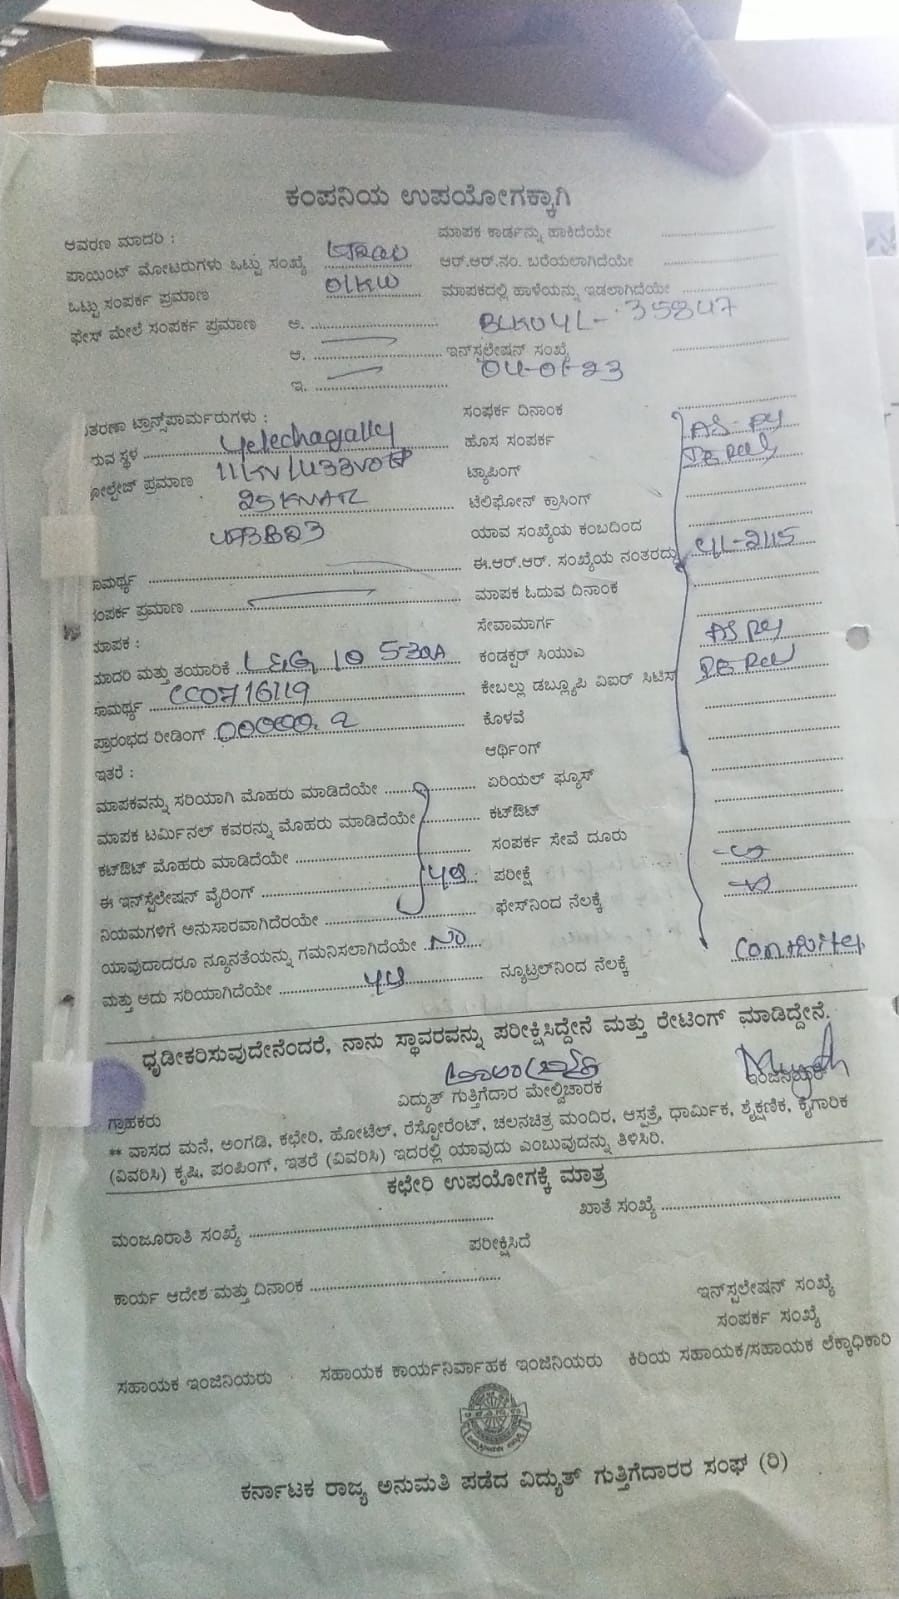 ಕಂಪನಿಯ ಉಪಯೋಗಕ್ಕಾಗಿ
ಆವರಣ ಮಾದರಿ :
ಪಾಯಿಂಟ್ ಮೋಟರುಗಳು ಒಟ್ಟು ಸಂಖ್ಯೆ
ಒಟ್ಟು ಸಂಪರ್ಕ ಪ್ರಮಾಣ 01KW
ಫೇಸ್ ಮೇಲೆ ಸಂಪರ್ಕ ಪ್ರಮಾಣ ಅ.
ಆ.
ಇ.
ತರಣಾ ಟ್ರಾನ್ಸ್‌ಪಾರ್ಮರುಗಳು :
ರುವ ಸ್ಥಳ Yelechagally
ೋಲ್ಟೇಜ್ ಪ್ರಮಾಣ
ಾಮರ್ಥ್ಯ
ಸಂಪರ್ಕ ಪ್ರಮಾಣ
ಮಾಪಕ :
ಮಾದರಿ ಮತ್ತು ತಯಾರಿಕೆ L&G 10 5-30A
ಸಾಮರ್ಥ್ಯ CC0716119
ಪ್ರಾರಂಭದ ರೀಡಿಂಗ್ 00000.2
ಇತರೆ :
ಮಾಪಕವನ್ನು ಸರಿಯಾಗಿ ಮೊಹರು ಮಾಡಿದೆಯೇ
ಮಾಪಕ ಟರ್ಮಿನಲ್ ಕವರನ್ನು ಮೊಹರು ಮಾಡಿದೆಯೇ
ಕಟ್‌ಔಟ್ ಮೊಹರು ಮಾಡಿದೆಯೇ
ಈ ಇನ್‌ಸ್ಟೆಲೇಷನ್ ವೈರಿಂಗ್
ನಿಯಮಗಳಿಗೆ ಅನುಸಾರವಾಗಿದೆರಯೇ
ಯಾವುದಾದರೂ ನ್ಯೂನತೆಯನ್ನು ಗಮನಿಸಲಾಗಿದೆಯೇ No
ಮತ್ತು ಅದು ಸರಿಯಾಗಿದೆಯೇ
ಮಾಪಕ ಕಾರ್ಡನ್ನು ಹಾಕಿದೆಯೇ
ಆರ್.ಆರ್.ನಂ. ಬರೆಯಲಾಗಿದೆಯೇ
ಮಾಪಕದಲ್ಲಿ ಹಾಳೆಯನ್ನು ಇಡಲಾಗಿದೆಯೇ
BLKU4L-35847
ಇನ್‌ಸ್ಟಲೇಷನ್ ಸಂಖ್ಯೆ
04-01-23
ಸಂಪರ್ಕ ದಿನಾಂಕ
ಹೊಸ ಸಂಪರ್ಕ
ಟ್ಯಾಪಿಂಗ್
ಟೆಲಿಫೋನ್ ಕ್ರಾಸಿಂಗ್
ಯಾವ ಸಂಖ್ಯೆಯ ಕಂಬದಿಂದ
ಈ.ಆರ್.ಆರ್. ಸಂಖ್ಯೆಯ ನಂತರದ್ದು
ಮಾಪಕ ಓದುವ ದಿನಾಂಕ
ಸೇವಾಮಾರ್ಗ
ಕಂಡಕ್ಟರ್ ಸಿಯುಎ
ಕೇಬಲ್ಲು ಡಬ್ಲ್ಯೂಪಿ ವಿಐರ್ ಸಿಟಿಸ್
ಕೊಳವೆ
ಆರ್ಥಿಂಗ್
ಏರಿಯಲ್ ಫ್ಯೂಸ್
ಕಟ್‌ಔಟ್
ಸಂಪರ್ಕ ಸೇವೆ ದೂರು
ಪರೀಕ್ಷೆ
ಫೇಸ್‌ನಿಂದ ನೆಲಕ್ಕೆ
ನ್ಯೂಟ್ರಲ್‌ನಿಂದ ನೆಲಕ್ಕೆ
ಧೃಡೀಕರಿಸುವುದೇನೆಂದರೆ, ನಾನು ಸ್ಥಾವರವನ್ನು ಪರೀಕ್ಷಿಸಿದ್ದೇನೆ ಮತ್ತು ರೇಟಿಂಗ್ ಮಾಡಿದ್ದೇನೆ.
ಗ್ರಾಹಕರು ವಿದ್ಯುತ್ ಗುತ್ತಿಗೆದಾರ ಮೇಲ್ವಿಚಾರಕ ಇಂಜಿನಿಯರ್
** ವಾಸದ ಮನೆ, ಅಂಗಡಿ, ಕಛೇರಿ, ಹೋಟೆಲ್, ರೆಸ್ಟೋರೆಂಟ್, ಚಲನಚಿತ್ರ ಮಂದಿರ, ಆಸ್ಪತ್ರೆ, ಧಾರ್ಮಿಕ, ಶೈಕ್ಷಣಿಕ, ಕೈಗಾರಿಕ
(ವಿವರಿಸಿ) ಕೃಷಿ, ಪಂಪಿಂಗ್, ಇತರೆ (ವಿವರಿಸಿ) ಇದರಲ್ಲಿ ಯಾವುದು ಎಂಬುವುದನ್ನು ತಿಳಿಸಿರಿ.
ಕಛೇರಿ ಉಪಯೋಗಕ್ಕೆ ಮಾತ್ರ
ಮಂಜೂರಾತಿ ಸಂಖ್ಯೆ ಖಾತೆ ಸಂಖ್ಯೆ
ಪರೀಕ್ಷಿಸಿದೆ
ಕಾರ್ಯ ಆದೇಶ ಮತ್ತು ದಿನಾಂಕ
ಇನ್‌ಸ್ಟಲೇಷನ್ ಸಂಖ್ಯೆ
ಸಂಪರ್ಕ ಸಂಖ್ಯೆ
ಸಹಾಯಕ ಇಂಜಿನಿಯರು ಸಹಾಯಕ ಕಾರ್ಯನಿರ್ವಾಹಕ ಇಂಜಿನಿಯರು ಕಿರಿಯ ಸಹಾಯಕ/ಸಹಾಯಕ ಲೆಕ್ಕಾಧಿಕಾರಿ
ಕರ್ನಾಟಕ ರಾಜ್ಯ ಅನುಮತಿ ಪಡೆದ ವಿದ್ಯುತ್ ಗುತ್ತಿಗೆದಾರರ ಸಂಘ (ರಿ)